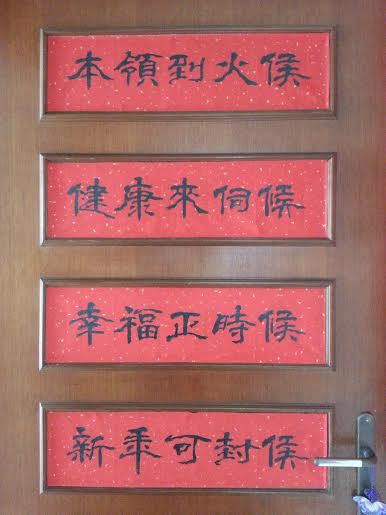 本領到火候
健康來伺候
幸福正時候
新年可封侯